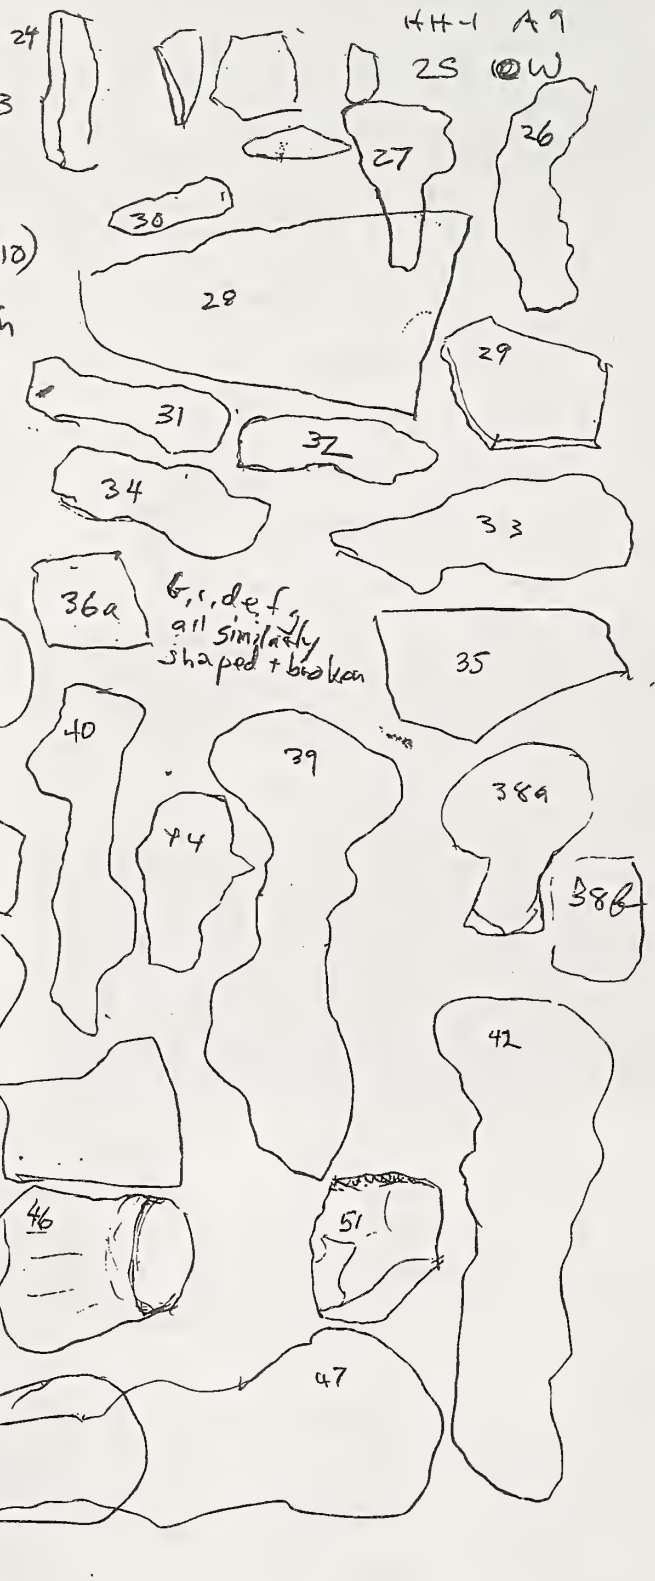 HH-1 A9
24
2S W
3
26
27
30
10)
28
29
31
32
34
33
36a
b, c, d, e, f, g
all similarly
shaped + broken
35
40
39
38a
44
38b
42
46
51
47